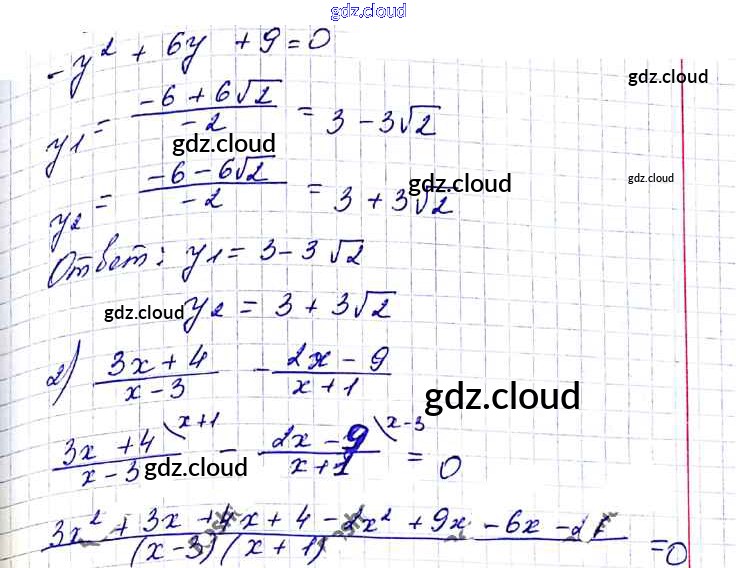 gdz.cloud
-y² + 6y + 9 = 0
gdz.cloud
y1 = (-6 + 6√2)/(-2) = 3 - 3√2
gdz.cloud
y2 = (-6 - 6√2)/(-2) = 3 + 3√2
gdz.cloud
gdz.cloud
Ответ: y1 = 3 - 3√2
y2 = 3 + 3√2
gdz.cloud
gdz.cloud
2) (3x + 4)/(x - 3) - (2x - 9)/(x + 1)
gdz.cloud
(3x + 4)/(x - 3) \x+1 - (2x - 9)/(x + 1) \x-3 = 0
gdz.cloud
(3x² + 3x + 4x + 4 - 2x² + 9x - 6x - 2)/((x - 3)(x + 1)) = 0